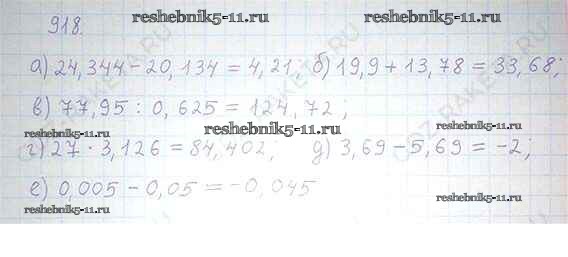 918.
reshebnik5-11.ru reshebnik5-11.ru
а) 24,344 - 20,134 = 4,21; б) 19,9 + 13,78 = 33,68;
в) 77,95 : 0,625 = 124,72;
reshebnik5-11.ru reshebnik5-11.ru reshebnik5-11.ru
г) 27 · 3,126 = 84,402; д) 3,69 - 5,69 = -2;
е) 0,005 - 0,05 = -0,045
reshebnik5-11.ru reshebnik5-11.ru reshebnik5-11.ru